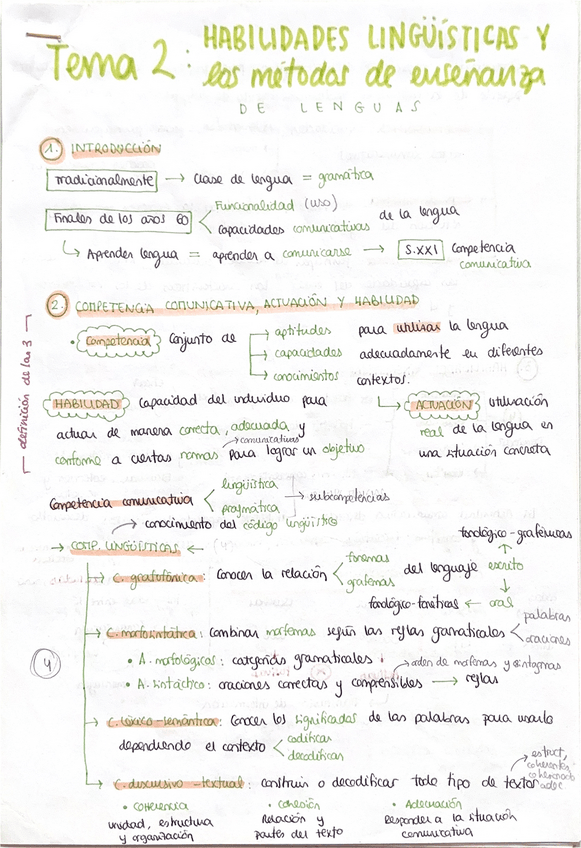 Tema 2: HABILIDADES LINGÜÍSTICAS Y
los métodos de enseñanza
DE LENGUAS
1. INTRODUCCIÓN
Tradicionalmente → clase de lengua = gramática
Finales de los años 60 Funcionalidad (uso)
capacidades comunicativas de la lengua
↳ Aprender lengua = aprender a comunicarse → S.XXI competencia
comunicativa
2. COMPETENCIA COMUNICATIVA, ACTUACIÓN Y HABILIDAD
definición de las 3
• Competencia conjunto de → aptitudes para utilizar la lengua
→ capacidades adecuadamente en diferentes
→ conocimientos contextos.
HABILIDAD capacidad del individuo para
actuar de manera correcta, adecuada y
→ comunicativas
conforme a ciertas normas para lograr un objetivo
→ ACTUACIÓN utilización
real de la lengua en
una situación concreta
Competencia comunicativa lingüística
pragmática → subcompetencias
→ conocimiento del código lingüístico
→ COMP. LINGÜÍSTICAS ←
fonológico-grafémicas
→ C. grafofónica: conocer la relación fonemas
grafemas del lenguaje escrito
fonológico-fonéticas ← oral
→ C. morfosintática: combinar morfemas según las reglas gramaticales palabras
oraciones
4
• A. morfológicos: categorías gramaticales → orden de morfemas y sintagmas
• A. sintáctico: oraciones correctas y comprensibles → reglas
→ C. léxico-semántica: conocer los significados de las palabras para usarlo
dependiendo el contexto codificar
decodificar
→ C. discursivo-textual: construir o decodificar todo tipo de textos
estruct,
coherentes
cohesionado
adec
• coherencia • cohesión • Adecuación
unidad, estructura Relación y Responder a la situación
y organización partes del texto comunicativa